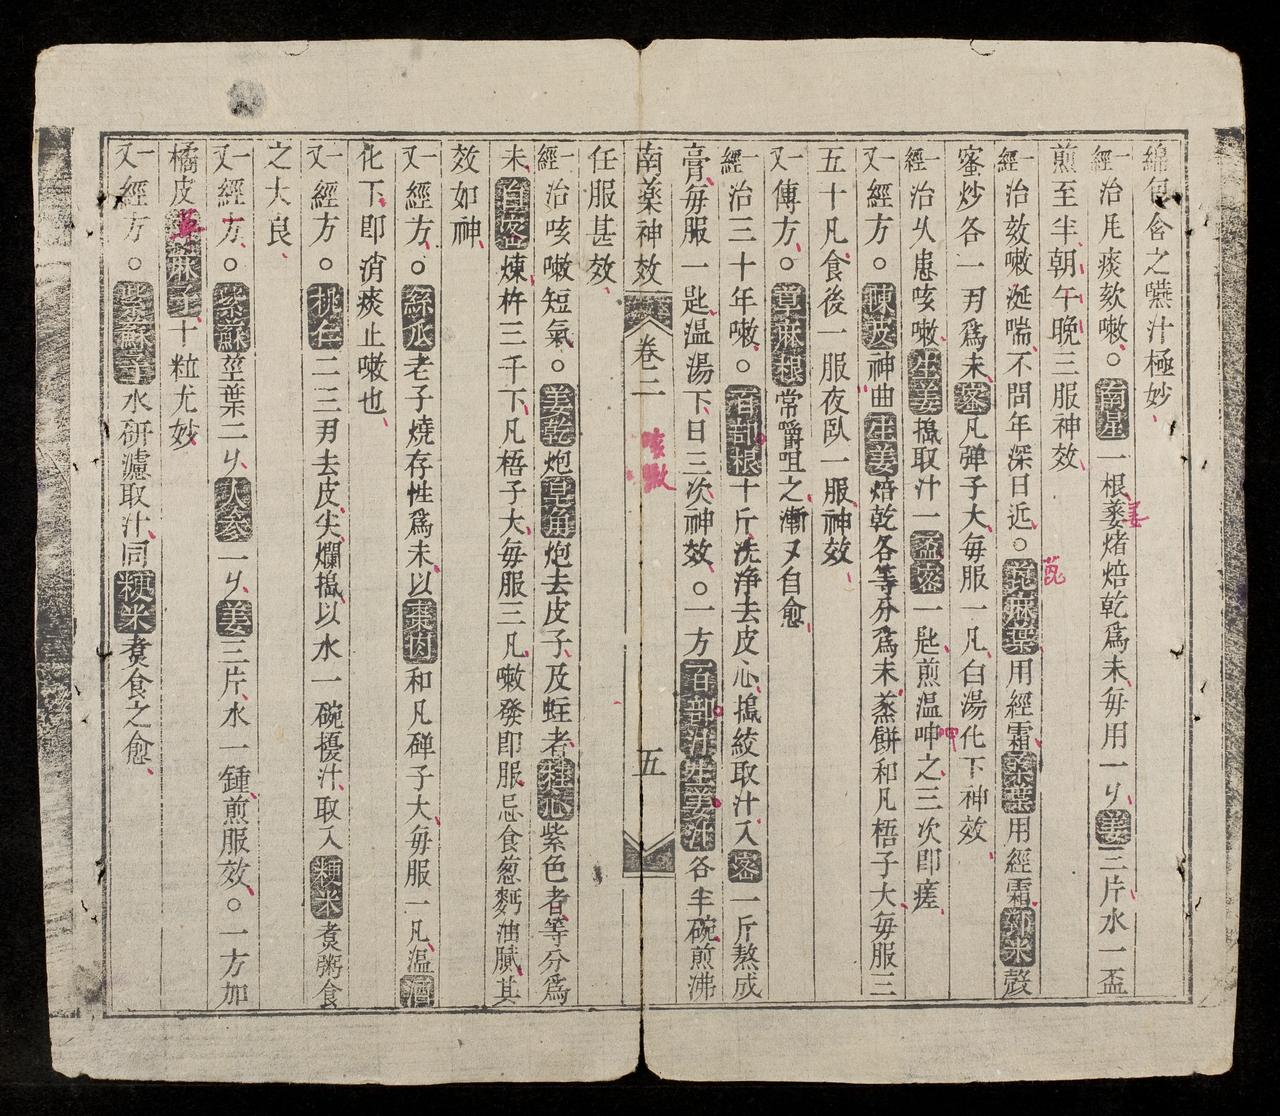 綿包含之嚥汁極妙
一經治凡痰欬嗽○南星一根蔞煨焙乾爲末每用一𠃔姜三片水一盃
煎至半朝午晚三服神效
一經治效嗽涎喘不問年深日近○萆麻葉用經霜桑葉用經霜御米殼
蜜炒各一刄爲末蜜凡弹子大每服一凡白湯化下神效
一經治久患咳嗽生姜搗取汁一盃蜜一匙煎温呻之三次即瘥
一又經方○陳皮神曲生姜焙乾各等分爲末蒸餅和凡梧子大每服三
五十凡食後一服夜臥一服神效
一又傳方○萆麻根常嚼咀之漸又自愈
一經治三十年嗽○百部根十斤洗浄去皮心搗絞取汁入密一斤熬成
膏每服一匙温湯下日三次神效○一方百部汁生姜汁各半碗煎沸
任服甚效
南藥神效 卷二 五
咳嗽
一經治咳嗽短氣○姜乾炮皂角炮去皮子及蛀者桂心紫色者等分爲
末白密煉杵三千下凡梧子大每服三凡嗽發即服忌食葱麪油膩其
效如神
一又經方○絲瓜老子燒存性爲末以棗肉和凡弹子大每服一凡温酒
化下即消痰止嗽也
一又經方○桃仁二三刄去皮尖爛搗以水一碗擾汁取入粳米煮粥食
之大良
一又經方○紫蘇莖葉二𠃔人參一𠃔姜三片水一鍾煎服效○一方加
橘皮萆麻子十粒尤妙
一又經方○紫蘇子水研濾取汁同粳米煮食之愈